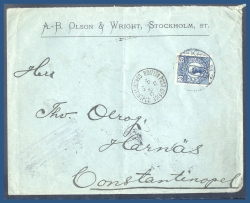 A.-B. OLSON & WRIGHT, STOCKHOLM, ST.
Herr
Thv. Olrog,
Harnäs
Constantinopel